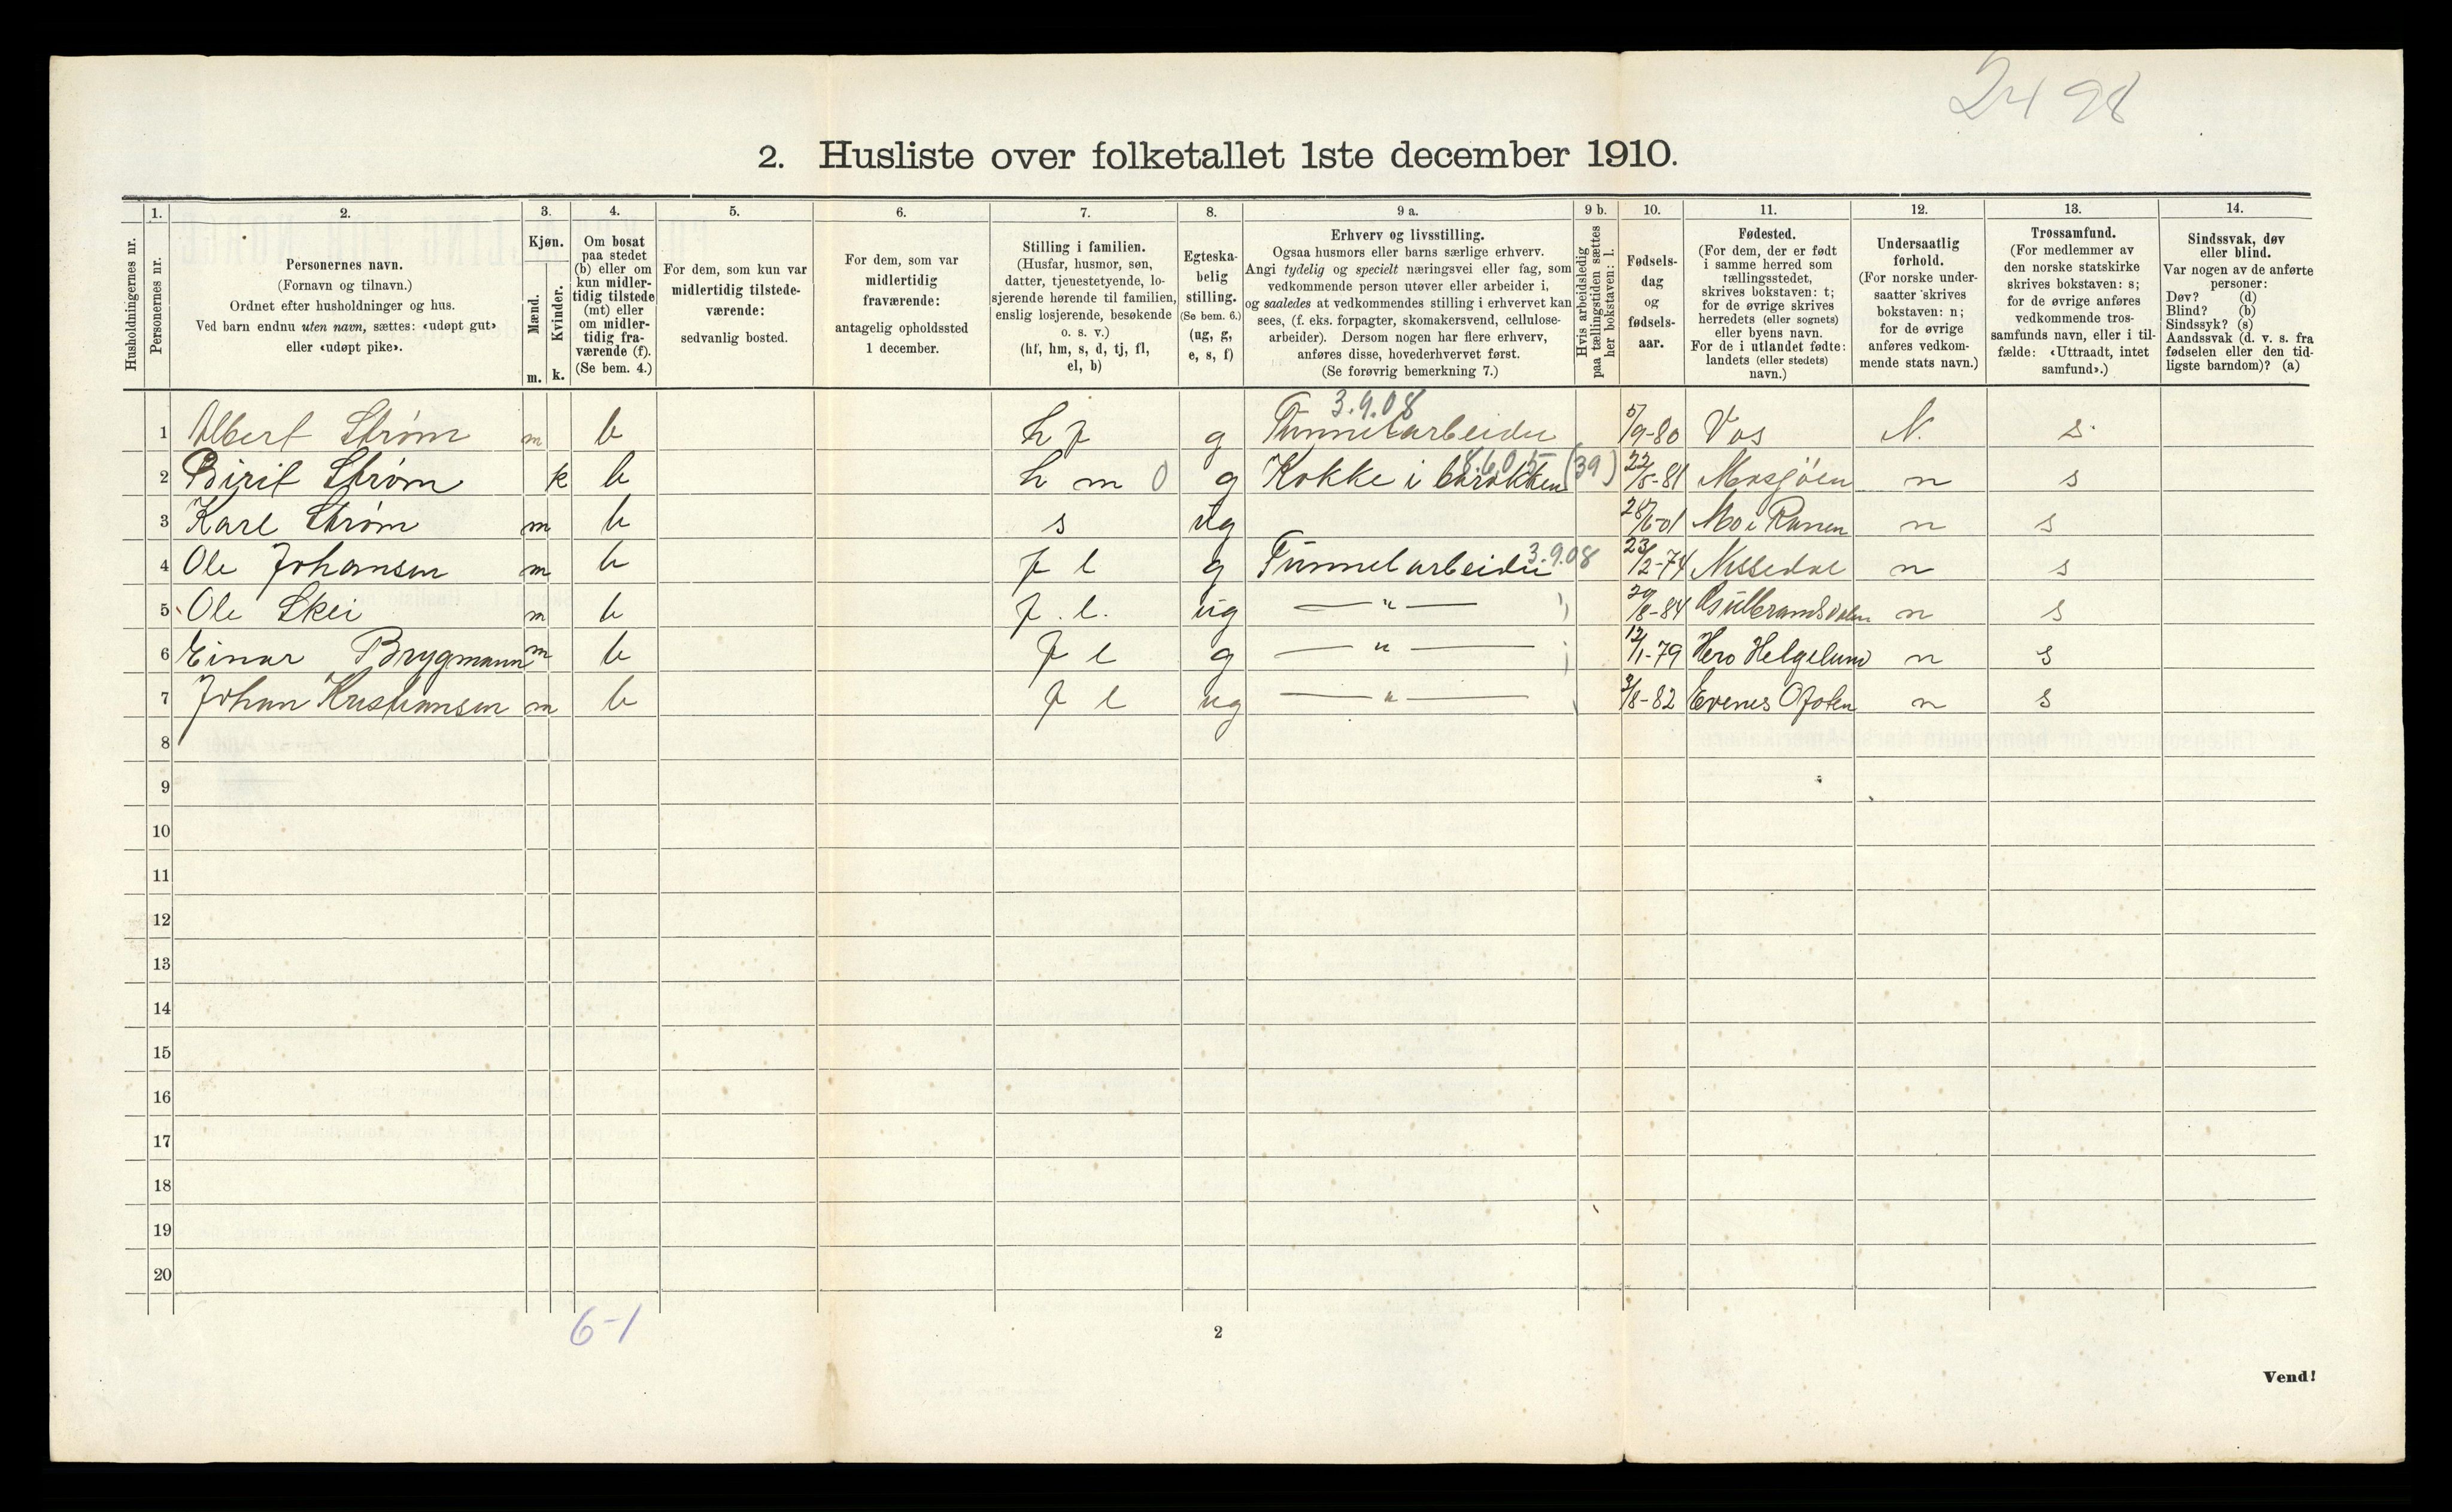 2498
2. Husliste over folketallet 1ste december 1910.
Husholdningernes nr.
1.
Personernes nr.
2.
Personernes navn.
(Fornavn og tilnavn.)
Ordnet efter husholdninger og hus.
Ved barn endnu uten navn, sættes: «udøpt gut»
eller «udøpt pike».
3.
Kjøn.
Mænd.
Kvinder.
m. k.
4.
Om bosat
paa stedet
(b) eller om
kun midler-
tidig tilstede
(mt) eller
om midler-
tidig fra-
værende (f).
(Se bem. 4.)
5.
For dem, som kun var
midlertidig tilstede-
værende:
sedvanlig bosted.
6.
For dem, som var
midlertidig
fraværende:
antagelig opholdssted
1 december.
7.
Stilling i familien.
(Husfar, husmor, søn,
datter, tjenestetyende, lo-
sjerende hørende til familien,
enslig losjerende, besøkende
o. s. v.)
(hf, hm, s, d, tj, fl,
el, b)
8.
Egteska-
belig
stilling.
(Se bem. 6.)
(ug, g,
e, s, f)
9 a.
Erhverv og livsstilling.
Ogsaa husmors eller barns særlige erhverv.
Angi tydelig og specielt næringsvei eller fag, som
vedkommende person utøver eller arbeider i,
og saaledes at vedkommendes stilling i erhvervet kan
sees, (f. eks. forpagter, skomakersvend, cellulose-
arbeider). Dersom nogen har flere erhverv,
anføres disse, hovederhvervet først.
(Se forøvrig bemerkning 7.)
9 b.
Hvis arbeidsledig
paa tællingstiden sættes
her bokstaven: l.
10.
Fødsels-
dag
og
fødsels-
aar.
11.
Fødested.
(For dem, der er født
i samme herred som
tællingsstedet,
skrives bokstaven: t;
for de øvrige skrives
herredets (eller sognets)
eller byens navn.
For de i utlandet fødte:
landets (eller stedets)
navn.)
12.
Undersaatlig
forhold.
(For norske under-
saatter skrives
bokstaven: n;
for de øvrige
anføres vedkom-
mende stats navn.)
13.
Trossamfund.
(For medlemmer av
den norske statskirke
skrives bokstaven: s;
for de øvrige anføres
vedkommende tros-
samfunds navn, eller i til-
fælde: «Uttraadt, intet
samfund».)
14.
Sindssvak, døv
eller blind.
Var nogen av de anførte
personer:
Døv? (d)
Blind? (b)
Sindssyk? (s)
Aandssvak (d. v. s. fra
fødselen eller den tid-
ligste barndom)? (a)
3.9.08
1 Albert Strøm m b hf g Tunnelarbeider 5/9-80 Vos N. s
2 Birit Strøm k b hm 0 g Kokke i barakken 8.6.05 (39) 22/8-81 Mosjøen n s
3 Karl Strøm m b s ug 28/6-01 Mo i Ranen n s
4 Ole Johansen m b fl g Tunnelarbeider 3.9.08 23/2-74 Nissedal n s
5 Ole Skei m b f.l. ug — " — 29/8-84 Gulbrandsdalen n s
6 Einar Brygmann m b fl g — " — 12/1-79 Hero Helgeland n s
7 Johan Kristiansen m b fl ug — " — 3/8-82 Evenes Ofoten n s
8
9
10
11
12
13
14
15
16
17
18
19
20
6-1
2
Vend!